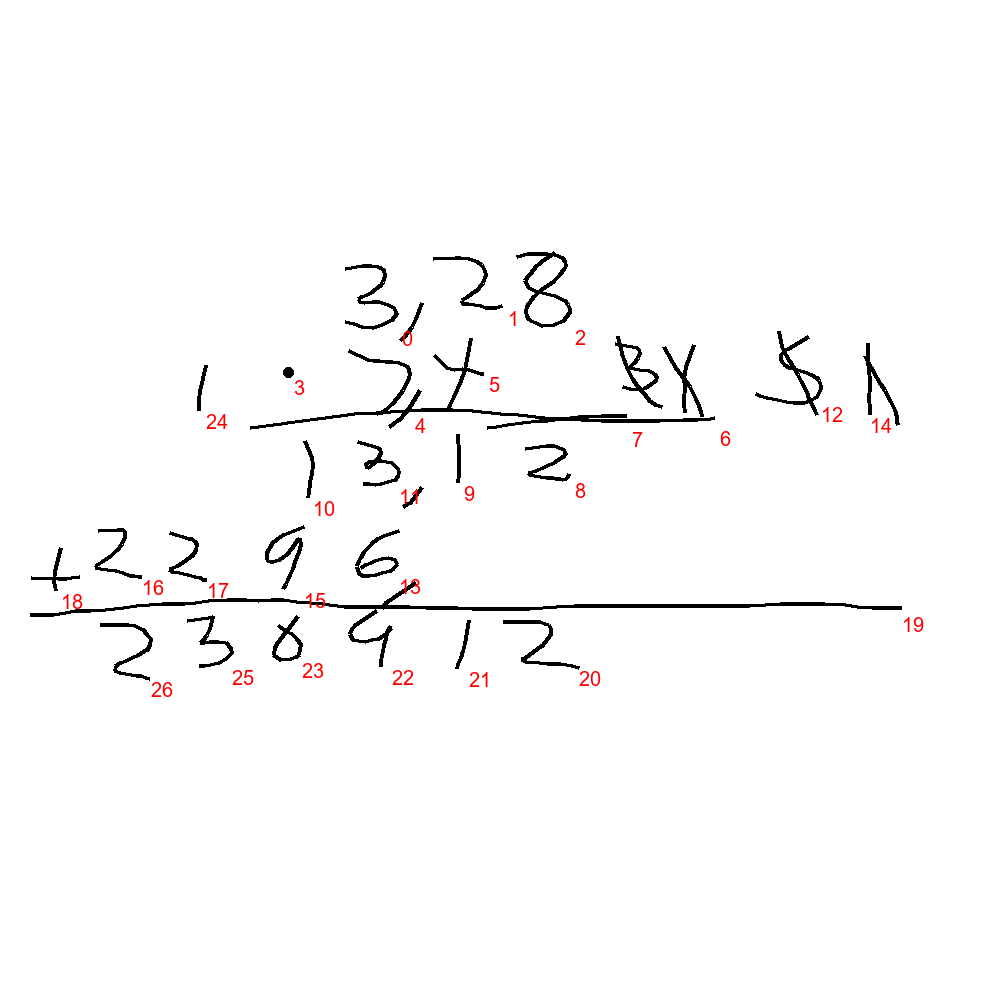 3,28
0 1 2
1 · 7,4
24 3 4 5 7 6 12 14
13,12
10 11 9 8
+2296
18 16 17 15 13
19
230912
26 25 23 22 21 20